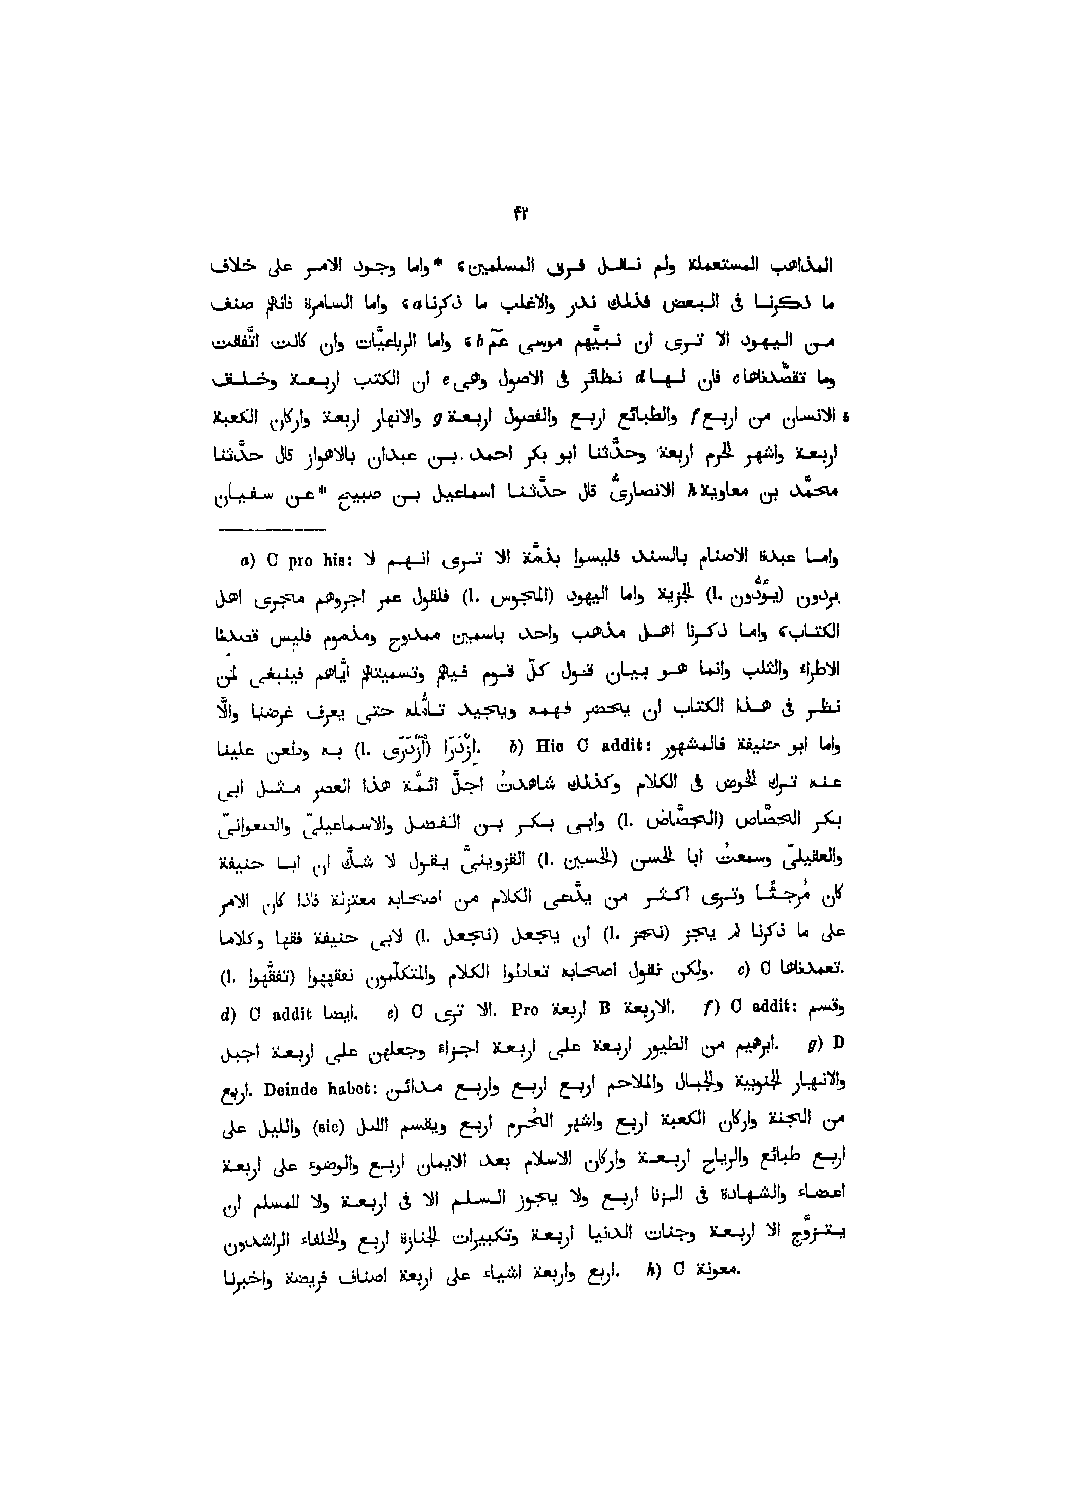 ٤٢
المذاهب المستعملة ولم نقل فرق المسلمين، *واما وجود الامر على خلاف
ما ذكرنا فى البعض فذلك ندر والاغلب ما ذكرنا a، واما السامرة فانهم صنف
من اليهود الا ترى ان نبيّهم موسى عمّ b، واما الرباعيّات وان كانت اتّفاقت
وما تقصّدناها c فان لها d نظائر فى الاصول وهى e ان الكتب اربعة وخلف
5 الانسان من اربع f والطبائع اربع والفصول اربعة g والانهار اربعة واركان الكعبة
اربعة واشهر الحرم اربعة، وحدّثنا ابو بكر احمد بن عبدان بالاهواز قال حدّثنا
محمّد بن معاوية h الانصارىّ قال حدّثنا اسماعيل بن صبيح *عن سفيان
a) C pro his: واما عبدة الاصنام بالسند فليسوا بذمّة الا ترى انهم لا
يردون (l. يؤدّون) الجزية واما اليهود (l. المجوس) فلقول عمر اجروهم مجرى اهل
الكتاب، واما ذكرنا اهل مذهب واحد باسمين ممدوح ومذموم فليس قصدنا
الاطراء والثلب وانما هو بيان قول كلّ قوم فيهم وتسميتهم ايّاهم فينبغى لمن
نظر فى هذا الكتاب ان يحضر فهمه ويجيد تأمّله حتى يعرف غرضنا والّا
ازْدَرَا (l. ازْدَرَى) به وطعن علينا. b) Hic C addit: واما ابو حنيفة فالمشهور
عنه ترك الخوض فى الكلام وكذلك شاهدتُ اجلّ ائمّة هذا العصر مثل ابى
بكر الحصّاص (l. الجصّاص) وابى بكر بن الفضل والاسماعيلىّ والصعوانىّ
والعقيلىّ وسمعتُ ابا الحسن (l. الحسين) القزوينىَّ يقول لا شكّ ان ابا حنيفة
كان مُرجئًا وترى اكثر من يدّعى الكلام من اصحابه معتزلة فاذا كان الامر
على ما ذكرنا لم يجز (l. نجز) ان يجعل (l. نجعل) لابى حنيفة فقها وكلاما
ولكن نقول اصحابه تعاطوا الكلام والمتكلّمون نعقبهوا (l. تفقّهوا). c) C تعمدناها.
d) C addit ايضا. e) C الا ترى. Pro اربعة B الاربعة. f) C addit: وقسم
ابرهيم من الطيور اربعة على اربعة اجزاء وجعلهن على اربعة اجبل. g) D
اربع. Deinde habet: والانهار الجنوبية والجبال والملاحم اربع اربع واربع مدائن
من الجنة واركان الكعبة اربع واشهر الحُرم اربع ويقسم الليل (sic) والليل على
اربع طبائع والرياح اربعة واركان الاسلام بعد الايمان اربع والوضوء على اربعة
اعضاء والشهادة فى الزنا اربع ولا يجوز السلم الا فى اربعة ولا للمسلم ان
يتزوّج الا اربعة وجنات الدنيا اربعة وتكبيرات الجنازة اربع والخلفاء الراشدون
اربع واربعة اشياء على اربعة اصناف فريضة واخبرنا. h) C معونة.